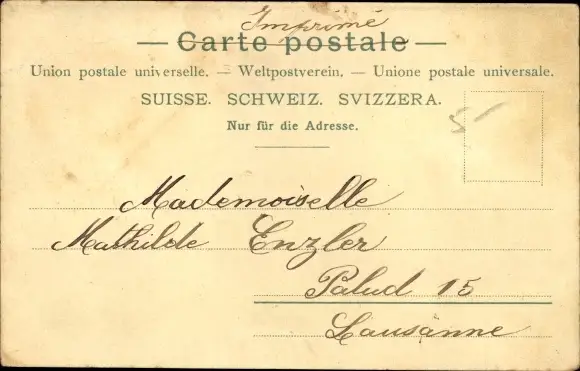 Imprimé
Carte postale
Union postale universelle. — Weltpostverein. — Unione postale universale.
SUISSE. SCHWEIZ. SVIZZERA.
Nur für die Adresse.
5
Mademoiselle
Mathilde Enzler
Palud 15
Lausanne